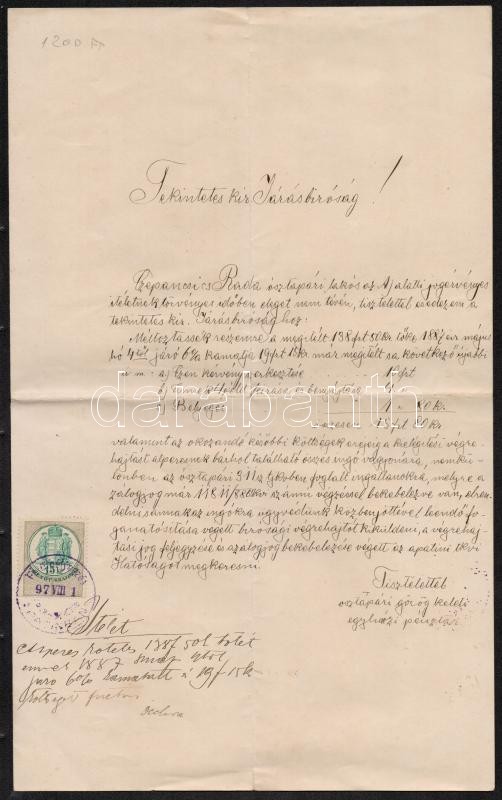 1200 Ft
Tekintetes kir Járásbiróság!
Czepancsics Rada ósztapári lakós az A) alatti jogérvényes
itéletnek törvényes időben eleget nem tévén, tisztelettel esedezem a
tekintetes kir. Járásbirósághoz:
Méltóztassék részemre a megitélt 138 frt 50 kr tőke, 1887 évi május
hó 4től járó 6% kamatja 19 frt 15 kr már megitélt s a következő ujabbi
u. m: a) Ezen kérvény szerkesztése 10 frt
b) ennek
c) Bélyeges 1 " 80 kr
összesen: 15 frt 80 kr
valamint az okozandó későbbi költségek erejéig a kielégitési végre-
hajtást alperesnek bárhol található összes ingó vagyonára, nemkü-
lönben az ósztapári 311 sz tjkvben foglalt ingatlanokra, melyre a
zálogjog már számu végzéssel bekebelezve van, elren-
delni s annak az ingókra ügyvédünk közbenjöttével leendő fo-
ganatósitása végett birósági végrehajtót kiküldeni, a végrehaj-
tási jog feljegyzése és a zálogjog bekebelezése végett az apatini tkvi
Hatóságot megkeresni.
Tisztelettel
ósztapári görög keleti
egyházi pénztár
97 VIII 1
Itélet
alperes köteles 138 f 50 k tőkét
ennek 1887
járó 6% kamatait s 19 f 15 k
darabanth